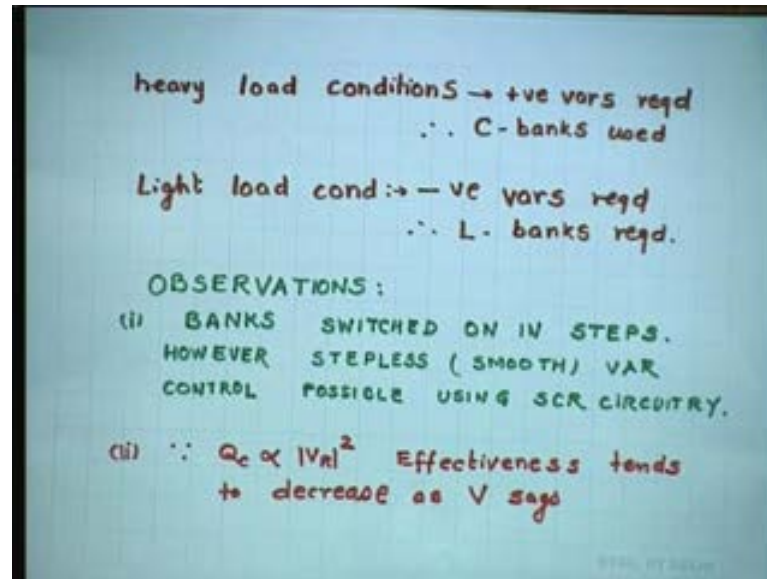 heavy load conditions → +ve vars reqd
∴ C-banks used
Light load cond:→ -ve vars reqd
∴ L- banks reqd.
OBSERVATIONS:
(i) BANKS SWITCHED ON IN STEPS.
HOWEVER STEPLESS (SMOOTH) VAR
CONTROL POSSIBLE USING SCR CIRCUITRY.
(ii) ∵ Qc ∝ |VR|² Effectiveness tends
to decrease as V sags